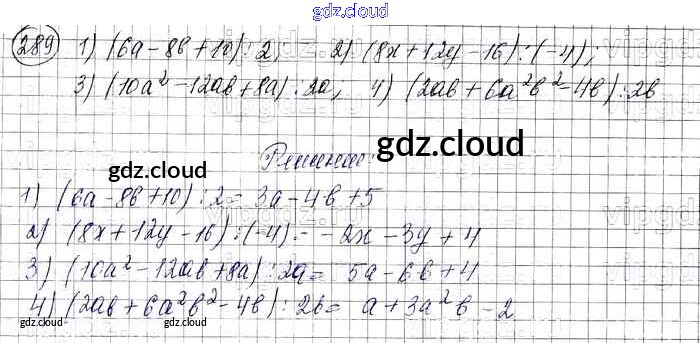 gdz.cloud
289 1) (6a-8b+10):2, 2) (8x+12y-16):(-4);
3) (10a²-12ab+8a):2a, 4) (2ab+6a²b²-4b):2b
gdz.cloud gdz.cloud
Решение:
1) (6a-8b+10):2=3a-4b+5
2) (8x+12y-16):(-4)=-2x-3y+4
3) (10a²-12ab+8a):2a=5a-6b+4
4) (2ab+6a²b²-4b):2b=a+3a²b-2
gdz.cloud gdz.cloud